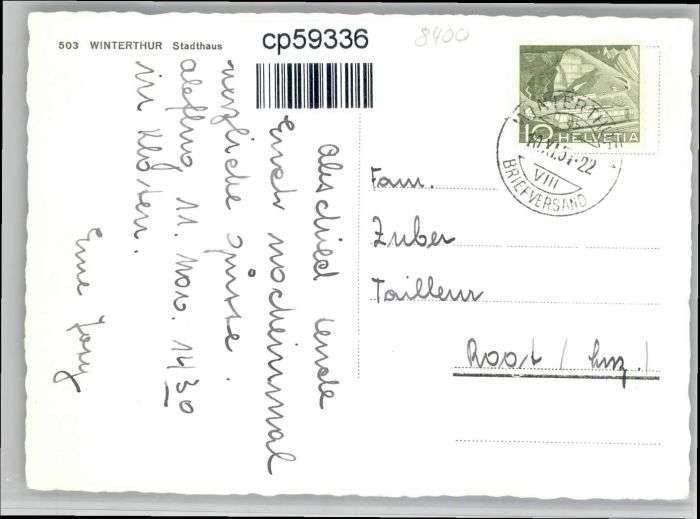 503 WINTERTHUR Stadthaus
cp59336
8400
10 HELVETIA
WINTERTHUR
10.XI.51-22
VIII
BRIEFVERSAND
Abschied sende
Euch nocheinmal
herzliche Grüsse.
Abflug 11. Nov. 14 30
in Kloten.
Fam.
Zuber
Tailleur
Root / Luz.